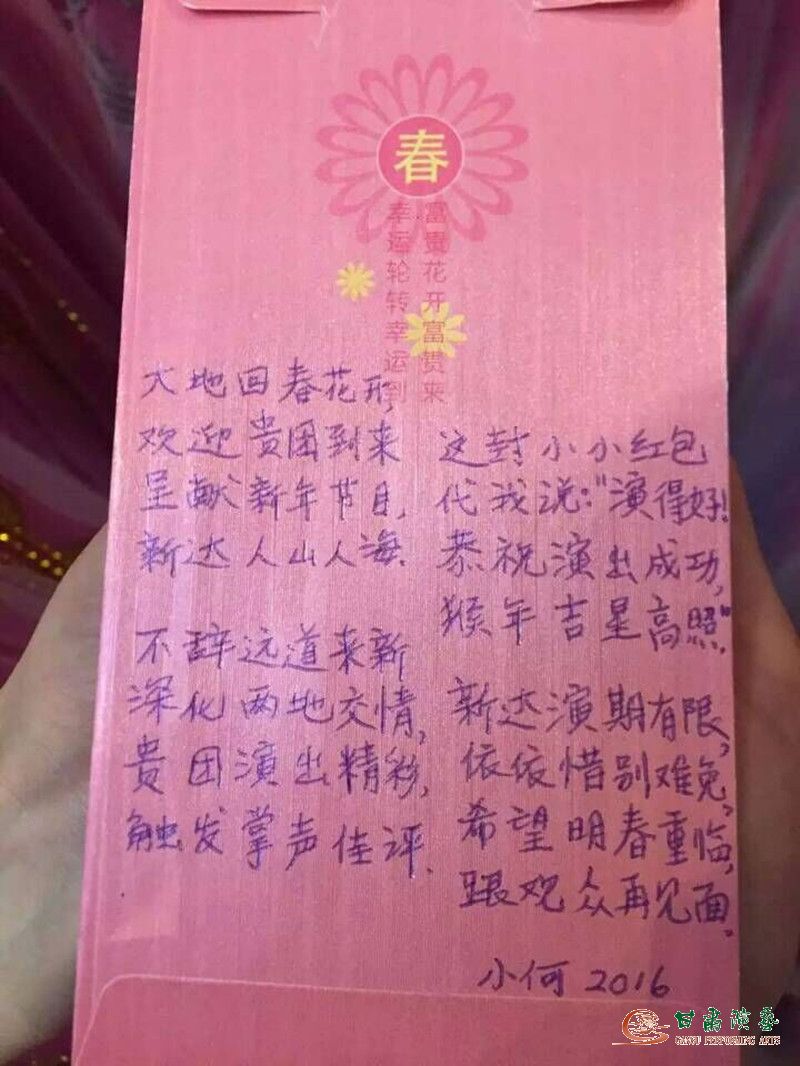 春
富贵花开富贵来
幸运轮转幸运到
大地回春花开,
欢迎贵团到来
呈献新年节目,
新达人山人海.
不辞远道来新
深化两地交情,
贵团演出精彩,
触发掌声佳评.
这封小小红包
代我说:"演得好!
恭祝演出成功,
猴年吉星高照".
新达演期有限,
依依惜别难免,
希望明春重临,
跟观众再见面.
小何 2016
甘肃演艺
GANSU PERFORMING ARTS